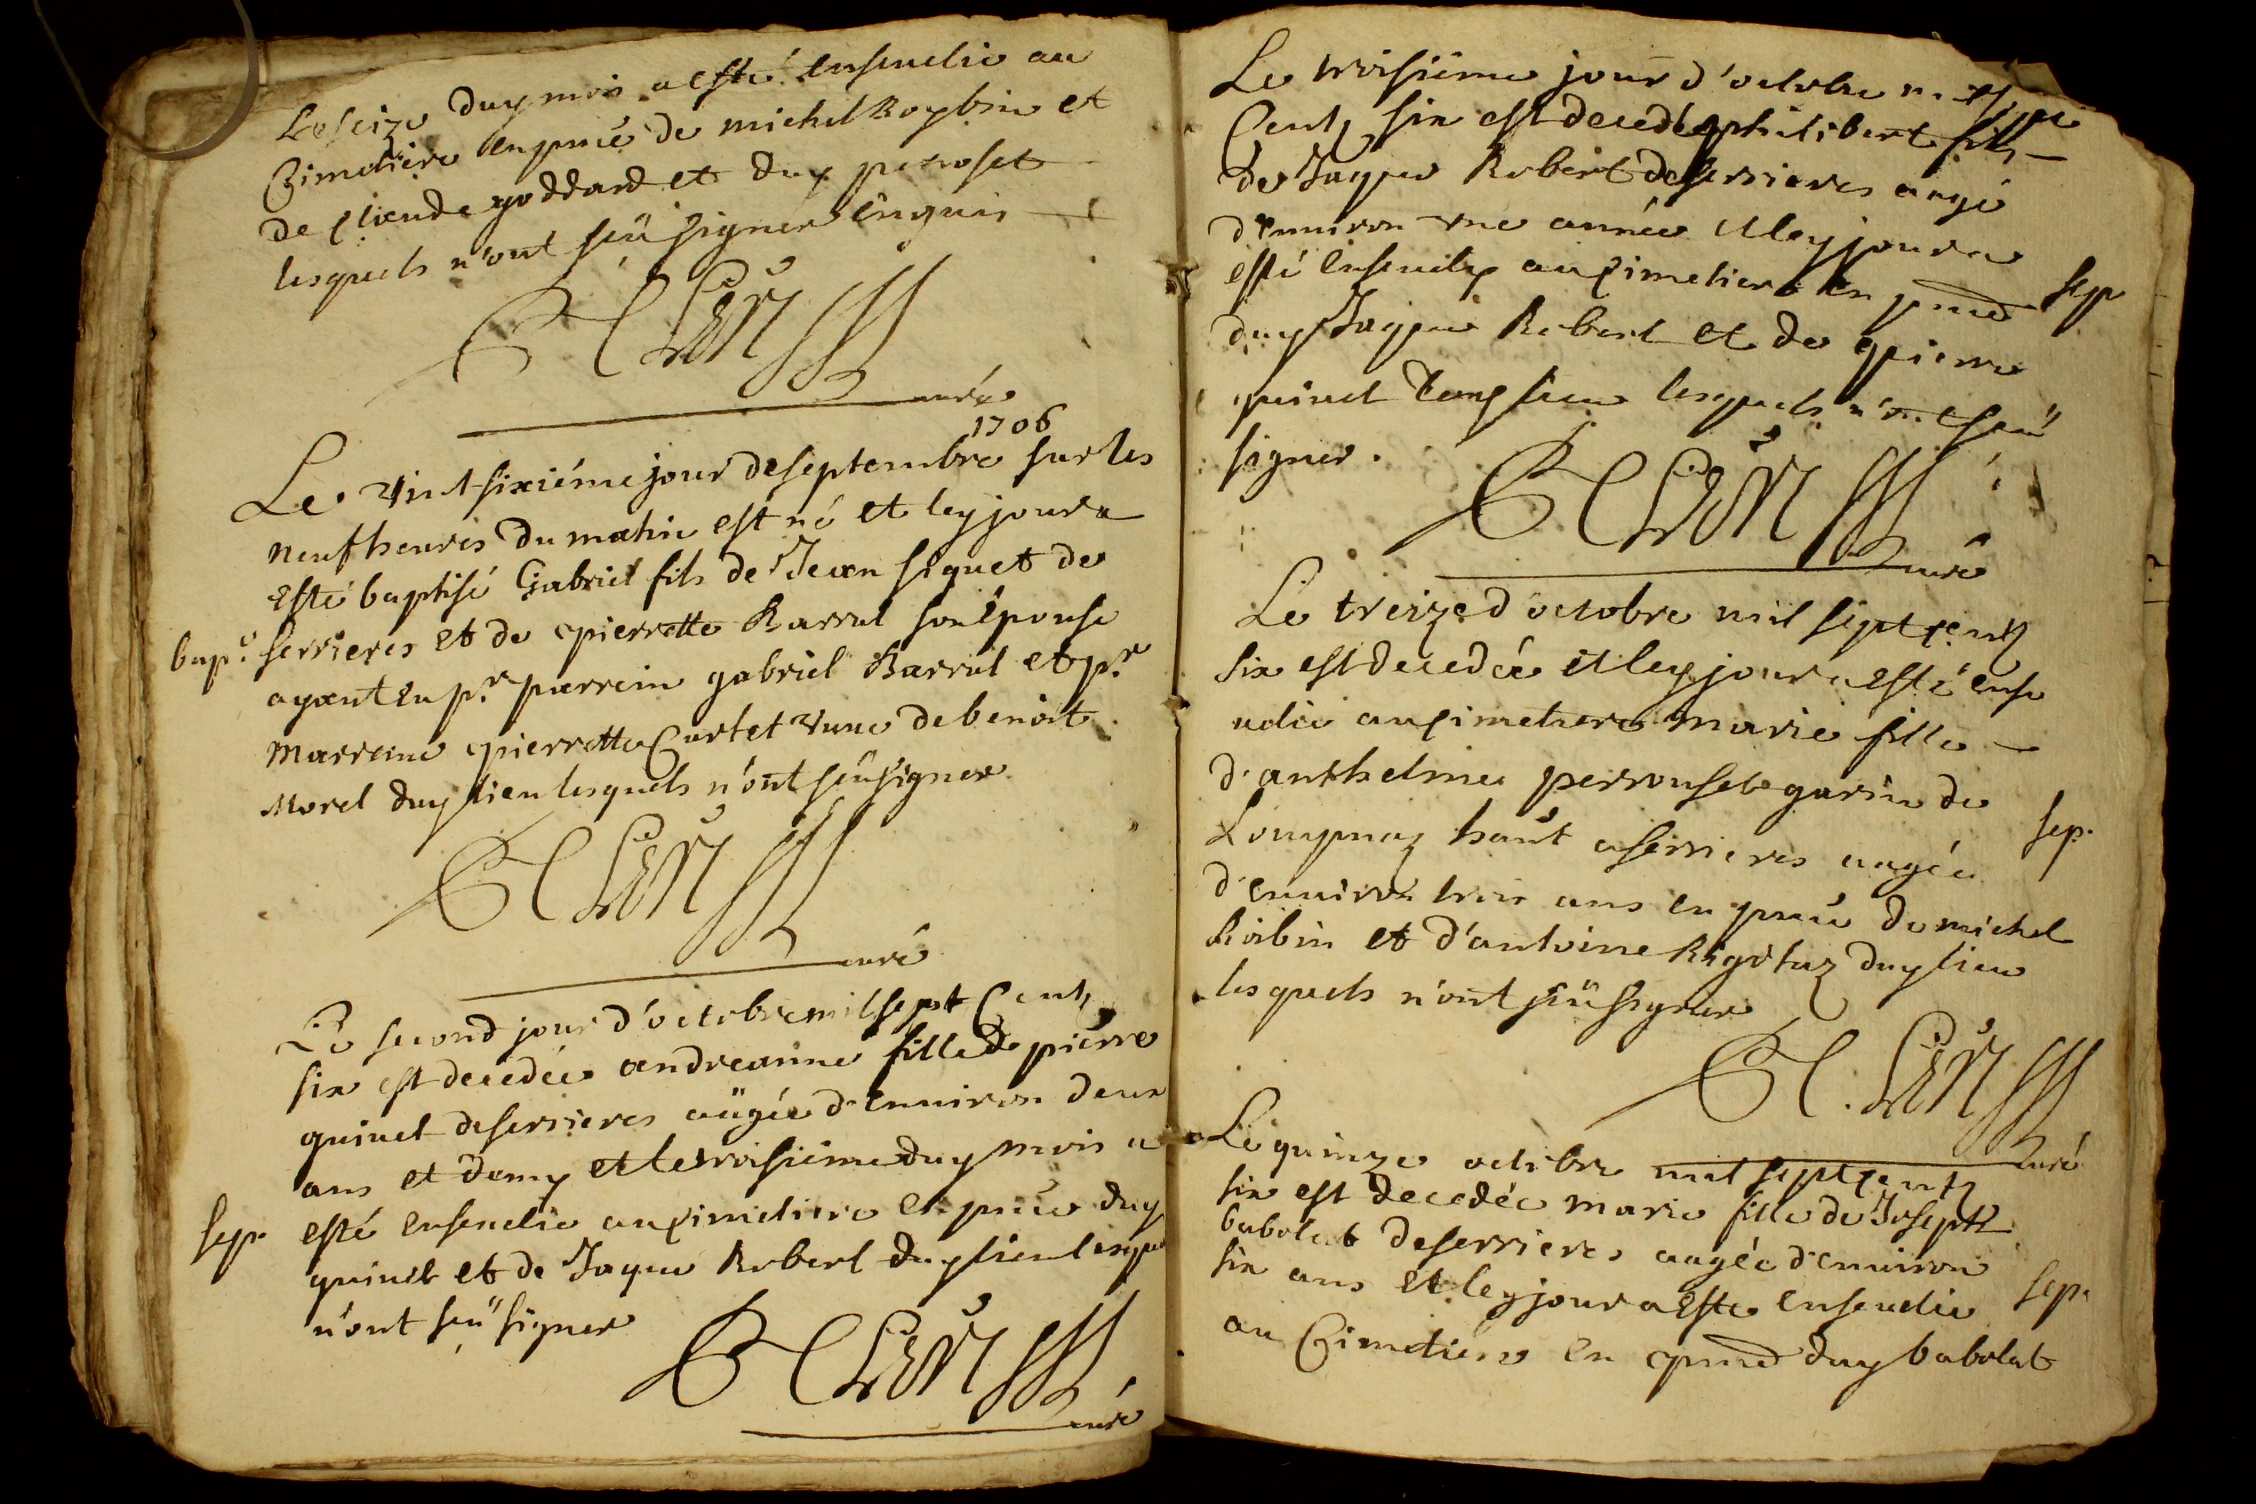 Le seize duy mois a esté enseuelie au
Cimetiere en pnce de michel Roybin et
de goddard et duy perroset
lesquels n'ont sceü signer enquis
curé
1706
Le vint sixiéme jour de septembre sur les
neuf heures du matin est né et ley jour a
Esté baptisé Gabriel fils de Jean siguet de
bapt. serrieres et de pierrette Barral son épouse
ayant eu pr. parrein gabriel Barral et pr.
marreine pierrette Curtet vuue de benoit
Morel duy lieu lesquels n'ont sceü signer
curé
Le second jour d'octobre mil sept Cents
six est decedée andreanne fille de pierre
quinet de serrieres aägée d'enuiron deux
ans et demy et le troisiéme duy mois a
sep. esté enseuelie au Cimetiere en pnce duy
quinet et de Jaque Robert duy lieu lesqu
n'ont sceü signer
curé
Le troisiéme jour d'octobre mil sept
Cents six est decedé philibert fils
de Jaque Robert de serrieres aagé
d'enuiron vne année et ley jour a
esté enseuely au Cimetiere en pnce sep
duy Jaque Robert et de pierre
quinet lieu lesquels n'ont sceü
signer.
curé
Le treize d'octobre mil sept cents
six est decedée et ley jour a Esté ense
uelie au Cimetiere marie fille
d'anthelme perrouset garin de
Lompnaz haut a serrieres aagée sep.
d'enuiron trois ans en pnce de michel
Roibin et d'antoine Rigotaz duy lieu
lesquels n'ont sceü signer
curé
Le quinze octobre mil sept cents
six est decedée marie fille de Joseph
babolat de serrieres aagée d'enuiron
six ans et ley jour a Esté enseuelie sep.
au Cimetiere en pnce duy babolat